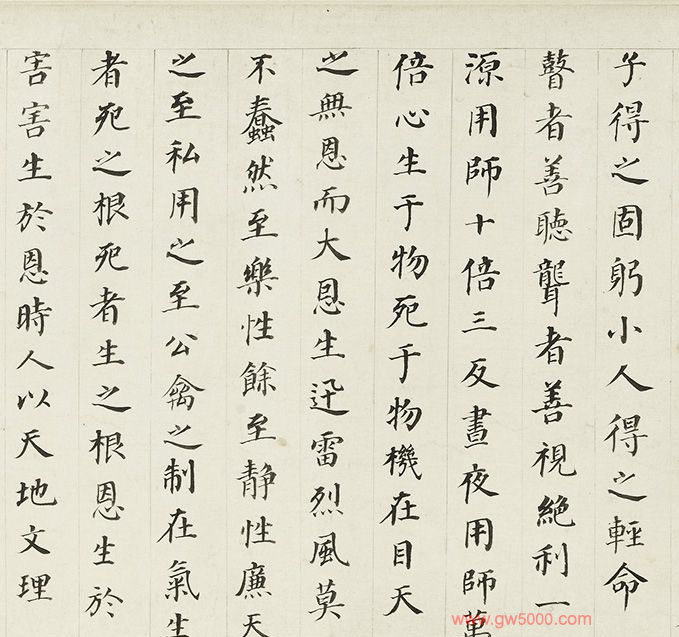 子得之固躬小人得之輕命
瞽者善聽聾者善視絶利一
源用師十倍三反晝夜用師萬
倍心生于物死于物機在目天
之無恩而大恩生迅雷烈風莫
不蠢然至樂性餘至靜性廉天
之至私用之至公禽之制在氣生
者死之根死者生之根恩生於
害害生於恩時人以天地文理
www.gw5000.com